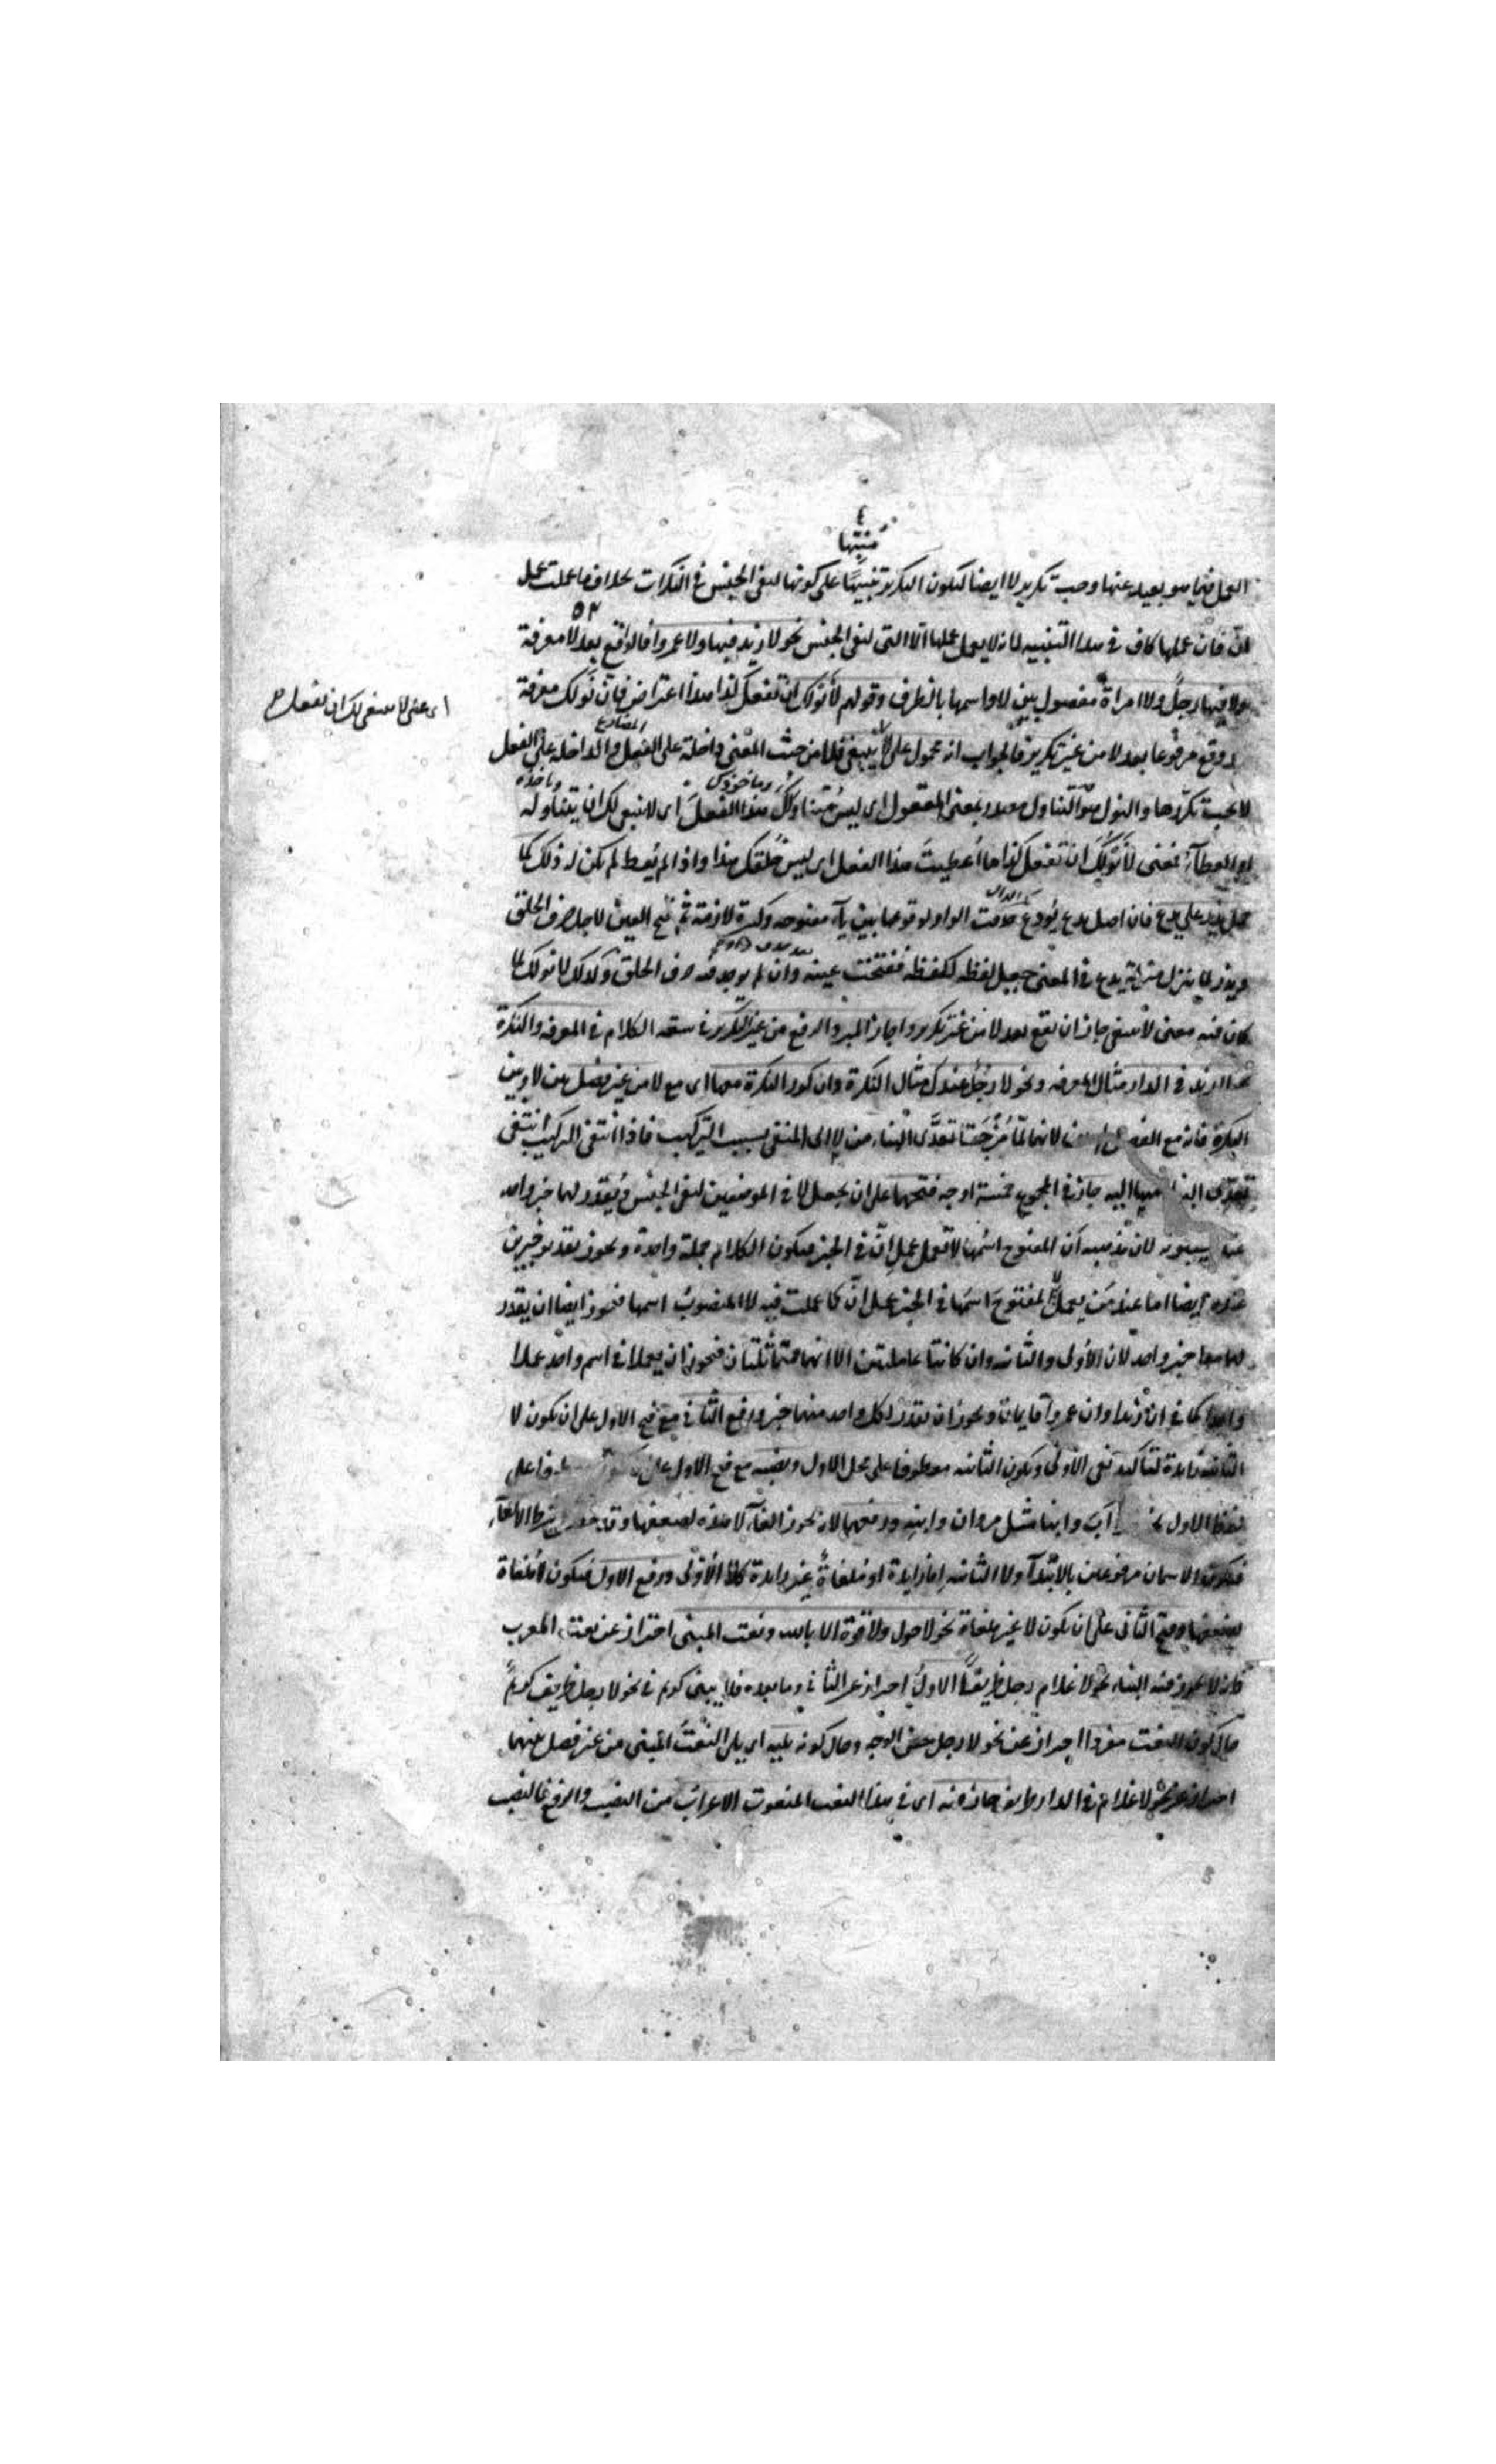 منبّها
العمل فيما هو بعيد عنها وجب تكرير لا ايضا ليكون التكرير تنبيهًا على كونها لنفى الجنس فى النكرات بخلاف ما عملت عمل
انّ فان عملها كاف فى هذا التنبيه لانه لا يعمل عملها الا التى لنفى الجنس نحو لا زيد فيها ولا عمرو فالواقع بعد لا معرفة
ولا فيها رجل ولا امراة مفصول بين لا واسمها بالظرف وقولهم لا نَوْلُك ان تفعل كذا هذا اعتراض فانّ نولك معرفة
اى معنى لا ينبغى لك ان تفعل
وقع مرفوعا بعد لا من غير تكرير فالجواب انه محمول على لا ينبغى فلا من حيث المعنى داخلة على الفعل المضارع والداخلة على الفعل
لا يجب تكررها والنول هو التناول مصدر بمعنى المفعول اى ليس متناولك وماخوذك هذا الفعل اى لا ينبغى لك ان يتناوله وياخذه
او العطاء فمعنى لا نولك ان تفعل كذا ما اُعطيتَ هذا الفعل اى ليس خُلقك هذا واذا لم يُعط لم يكن له ذلك كما
حمل يذر على يدع فان اصل يدع يَوْدع حذفت الواو لوقوعها بين ياء مفتوحة وكسرة لازمة ثم فتح العين لاجل حرف الحلق
ويذر لما ينزل منزلة يدع فى المعنى جعل لفظه كلفظه ففتحت عينه وان لم يوجد فيه حرف الحلق وكذلك لا نولك لما
كان فيه معنى لا ينبغى جاز ان يقع بعد لا من غير تكرير واجاز المبرد الرفع من غير التكرير فى سعة الكلام فى المعرفة والنكرة
نحو لا زيد فى الدار مثال المعرفة ونحو لا رجل عندك مثال النكرة وان كرر النكرة معها اى مع لا من غير فصل بين لا وبين
النكرة فانه مع الفصل لانهما لمّا مُزجتا تعدّى البناء من لا الى المنفى بسبب التركيب فاذا انتفى التركيب انتفى
تعدّى البناء منها اليه جاز فى المجموع خمسة اوجه فتحهما على ان يجعل لا فى الموضعين لنفى الجنس ويُقدّر لهما خبر واحد
عند سيبويه لان مذهبه ان المفتوح اسمها لا تعمل عمل انّ فى الخبر فيكون الكلام جملة واحدة ويجوز تقدير خبرين
عنده ايضا اما عند من يعمل لا المفتوح اسمها فى الخبر عمل انّ كما عملت فيه لا المنصوب اسمها فيجوز ايضا ان يقدر
لهما معا خبر واحد لان الاولى والثانية وان كانتا عاملتين الا انهما متماثلتان فيجوز ان يعملا فى اسم واحد عملا
واحدا كما فى انّ زيدا وان عمروا قايمان ويجوز ان يقدر لكل واحد منهما خبر ورفع الثانى مع فتح الاول على ان يكون لا
الثانية زايدة لتاكيد نفى الاولى ويكون الثانية معطوفا على محل الاول ونصبه مع فتح الاول على
لفظ الاول اب وابنا مثل مروان وابنه ورفعهما لانه يجوز الغاء لا هذه لضعفها شرط الالغاء
فيكون الاسمان مرفوعين بالابتداء ولا الثانية اما زايدة او ملغاةٌ غير زايدة كلا الاولى ورفع الاول فيكون لا ملغاة
لضعفها وفتح الثانى على ان يكون لا غير ملغاة نحو لا حول ولا قوة الا بالله ونعت المبنى احتراز عن نعت المعرب
فانه لا يجوز فيه البناء نحو لا غلام رجل ظريفًا الاول احتراز عن الثانى وما بعده فلا يبنى كريم فى نحو لا رجل ظريف كريمٌ
حال كون النعت مفردا احتراز عن نحو لا رجل حسن الوجه وحال كونه يليه اى يلى النعت المبنى من غير فصل بينهما
احتراز عن نحو لا غلام فى الدار ظريف جاز فيه اى فى هذا النعت المنعوت الاعراب من النصب والرفع فالنصب